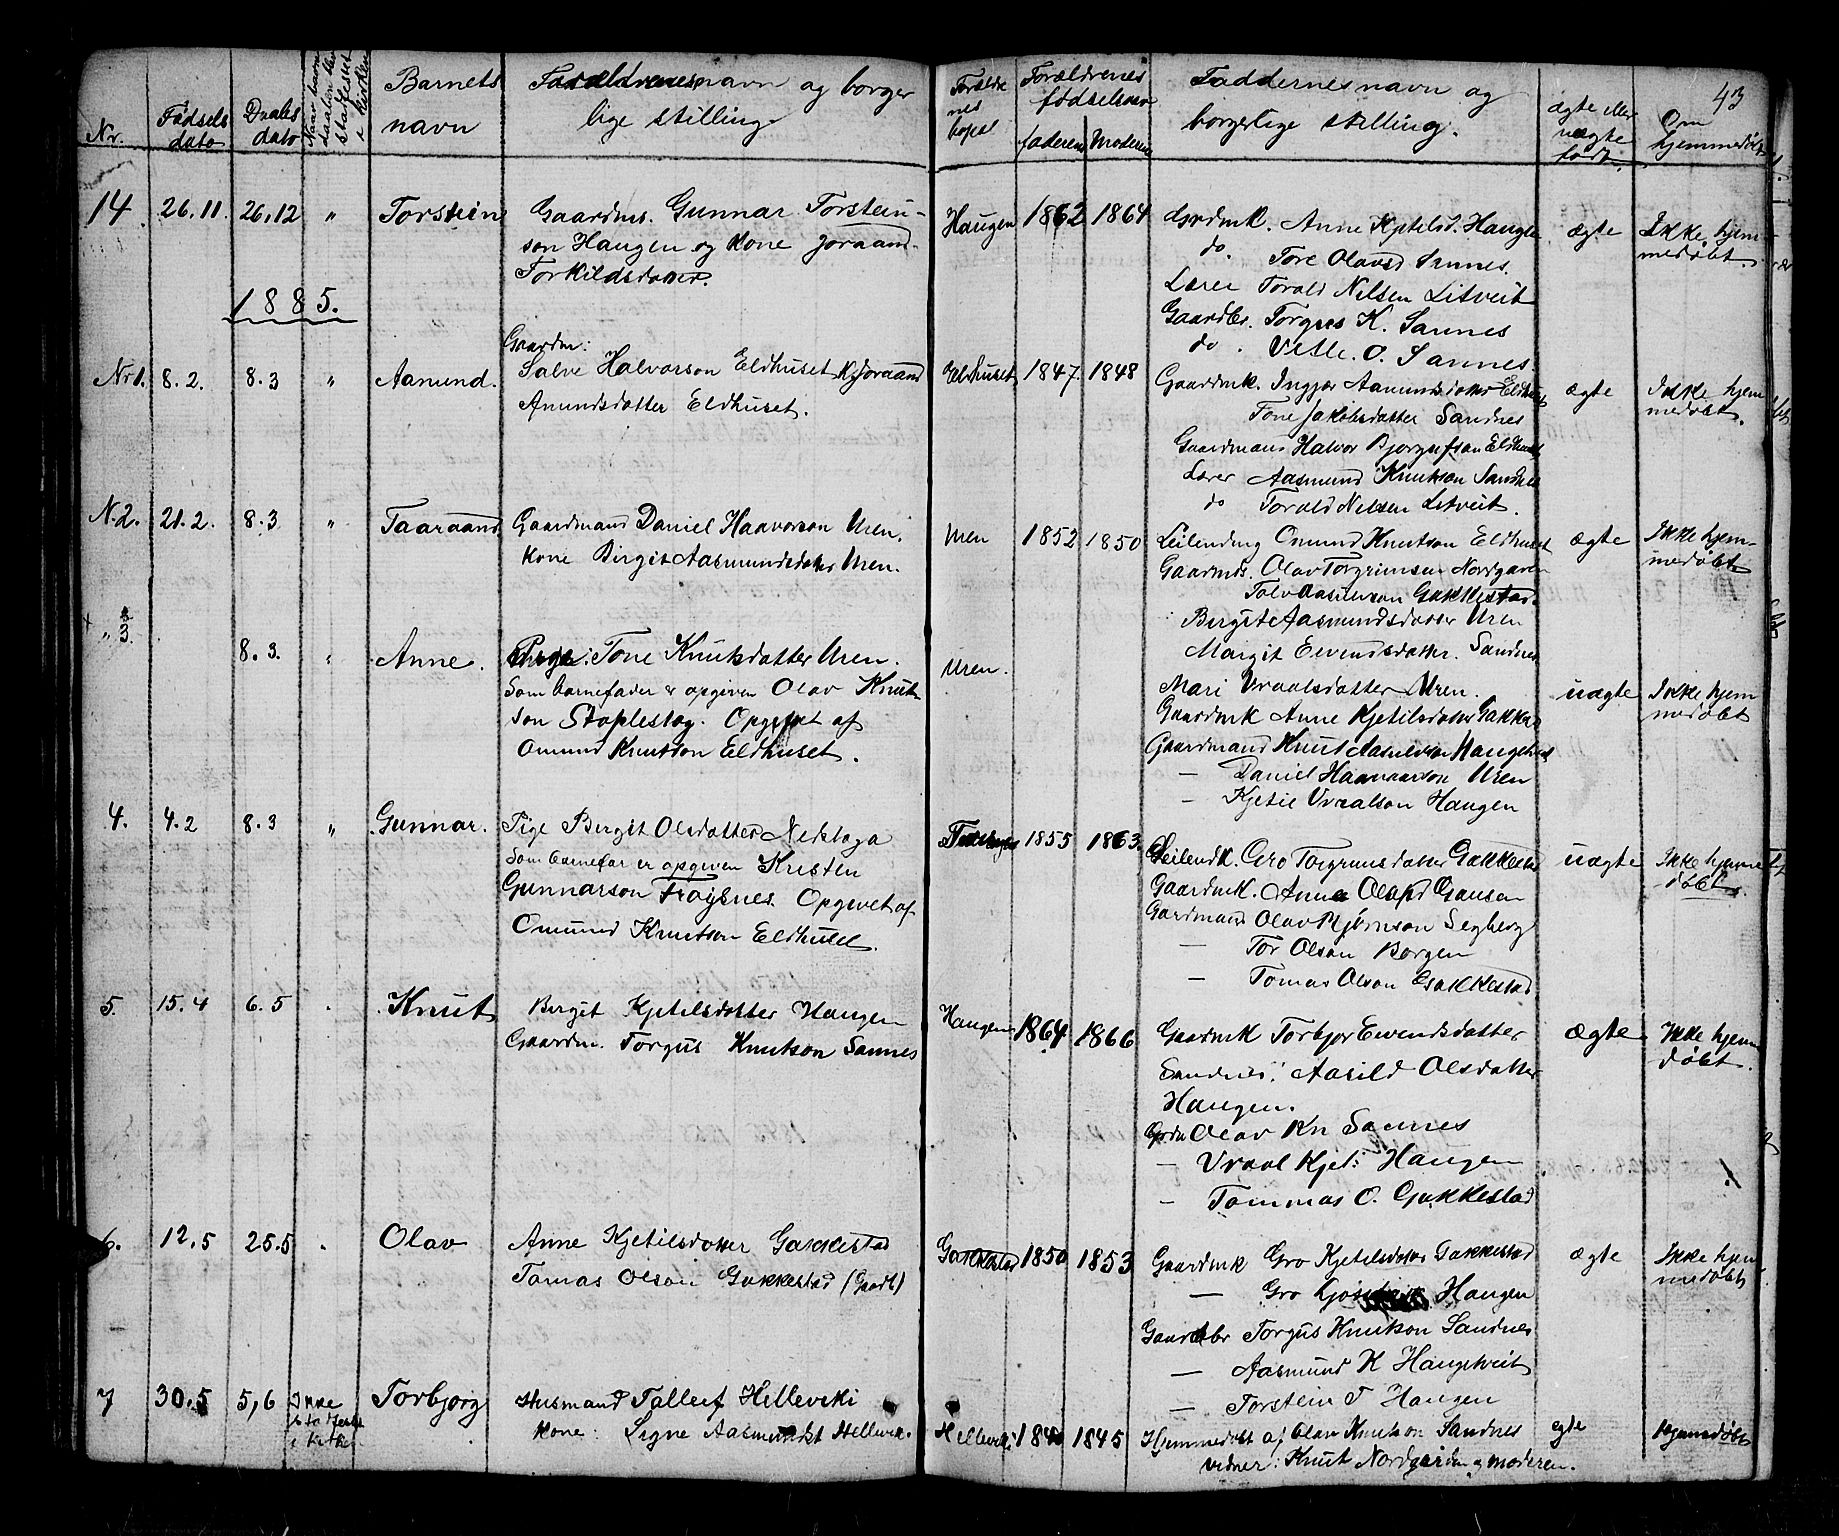 43
Nr.
Fødsels dato
Daabs dato
Naar barnets daaben blev stadfestet i kirken
Barnets navn
Forældrenes navn og borgerlige stilling
Forældrenes bopæl
Forældrenes fødselsaar
faderens
Moderens
Faddernes navn og borgerlige stilling.
ægte eller uægte født.
Om hjemmedøbt
14 26.11. 26.12 " Torstein Gaardms. Gunnar Torstein-
son Haugen og kone Joraand
Torkildsdatter.
Haugen 1862 1864
Grdmk. Anne Kjetilsd. Haugen
do. Tore Olavsd Sannes.
Lærer Torald Nilsen Litveit
Gaardbr. Torgus K. Sannes
do. Vetle. O. Sannes
ægte
Ikke hjem-
medøbt.
1885.
Nr 1. 8.2. 8.3 " Aamund.
Gaardm:
Salve Halvorson Eldhuset K. Joraand
Amundsdatter Eldhuset.
Eldhuset 1847. 1848
Gaardmk. Ingjær Aamundsdatter Eldhuset
Tone Jakobsdatter Sandnes
Gaardmans Halvor Bjorgufson Eldhuset
Lærer Aasmund Knutson Sandnes
do Torald Nilsen Litveit.
ægte
Ikke hjem
medøbt.
N.2. 21.2. 8.3 " Taaraand
Gaardmand Daniel Haavorson Uren.
kone Birgit Aasmundsdatter Uren.
Uren 1852 1850
Leilending Omund Knutson Eldhuset
Gaardmds. Olav Torgrimsen Nordgaren
Tolv Aasmunson Gakkestad.
Birgite Aasmundsdatter Uren
Margit Eivendsdatter. Sandnes
ægte
Ikke hjem-
medøbt
" 3. 8.3. " Anne.
Pige: Tone Knutsdatter Uren.
Som barnefader er opgiven Olav Knut
son Staplestog. Opgivet af
Omund Knutson Eldhuset.
Uren.
Mari Vraalsdatter Uren.
Gaardmk Anne Kjetilsdatter Gakkes
Gaardmand Knut Aasmundson Haugtveit
— Daniel Haavaarson Uren
— Kjetil Vraalson Haugen
uægte
Ikke hjem
medøbt
4. 4.2 8.3 " Gunnar.
Pige Bergit Olsdatter Nedstoga
Som barnefar er opgiven Kristen
Gunnarson Frøysnes. Opgivet af
Omund Knutson Eldhuset.
1855 1863.
Leilendk. Gro Torgrimsdatter Gakkestad
Gaardmk. Anne Olavsd Gausen
Gardmand Olav Bjørnson Segberg
— Tor Olson Borgen
— Tomas Olson Gakkestad
uægte
Ikke hjemme
døbt.
5. 15.4 6.5 . Knut
Birgit Kjetilsdatter Haugen
Gaardm. Torgus Knutson Sannes
Haugen 1864 1866
Gaardmk Torbjor Eivendsdatter
Sandnes. Aasild Olsdatter
Haugen.
Grdm Olav Kn Sannes
— Vraal Kjet: Haugen
— Tommas O. Gakkestad
ægte
Ikke hjem
døbt.
6. 12.5 25.5 . Olav
Anne Kjetilsdatter Gakkestad
Tomas Olson Gakkestad (Gaardb)
Gakkestad 1850 1853
Gaardmk Gro Kjetilsdatter Gakkestad
— Gro Haugen
Gaardbr Torgus Knutson Sandnes
— Aasmund K Haugtveit
— Torstein T Haugen
ægte
Ikke hjem
medøbt
7 30.5 5,6 Ikke stadfestet i kirken Torbjorg
Husmand Tallef Helleviki
Kone: Signe Aasmundsdt Hellevik.
Helleviki 1845
Hjemmedøbt af Olav Knutson Sandnes
vidner: Knut Nordgården og moderen.
egte
hjemmedøbt